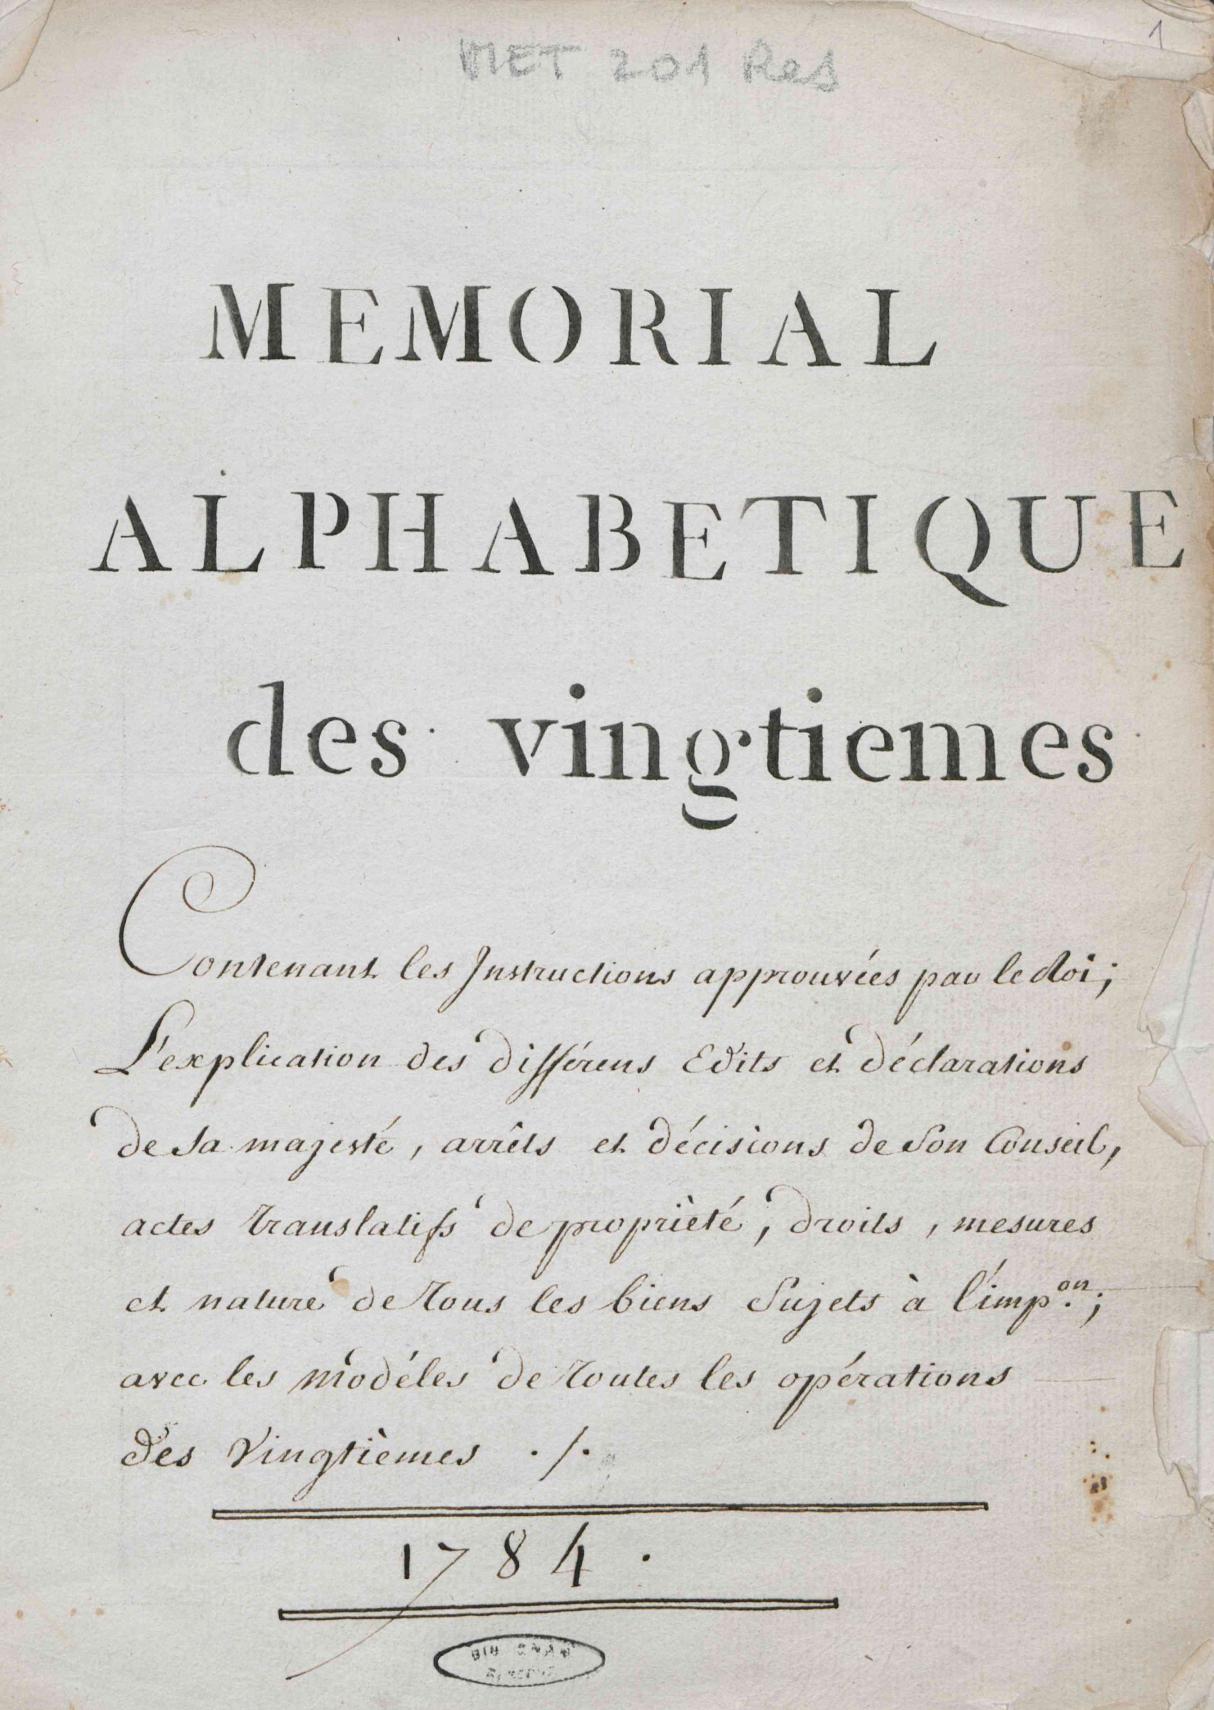 1
MET 201 Res
MEMORIAL
ALPHABETIQUE
des vingtiemes
Contenant les Instructions approuvées par le Roi;
L'explication des différens Edits et déclarations
de Sa majesté, arrêts et décisions de Son Conseil,
actes translatifs de proprièté, droits, mesures
et nature de tous les biens Sujets à l'imp.on;
avec les modéles de toutes les opérations
des Vingtièmes ./.
1784.
BIB CNAM
RESERVE